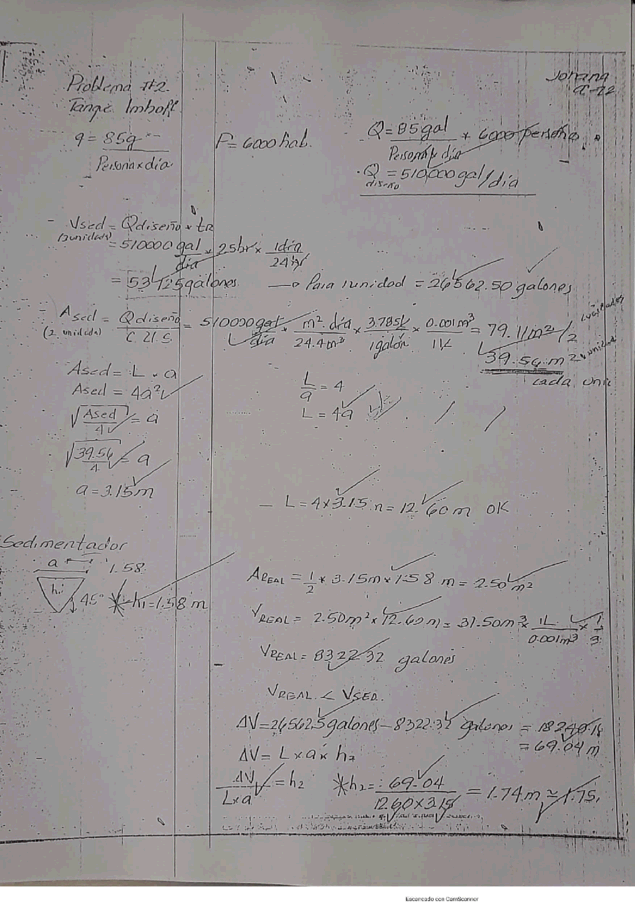 Problema #2
Tanque Imhoff
q = 85g
Persona x dia
P = 6000 hab.
Q = 85 gal * 6000 persona
Persona x dia
Q diseño = 510,000 gal/dia
Vsed = Q diseño * tr
(2 unidades)
= 510000 gal/dia * 2.5 hr * 1 dia/24 hr
= 53125 galones → Para 1 unidad = 26562.50 galones
Ased = Q diseño / C.S. = 510000 gal/dia * m². dia/24.4 m³ * 3.785L/1 galón * 0.001 m³/1L = 79.11 m²/2 unidades
(2 unidad)
39.56 m²
cada uni
Ased = L . a
Ased = 4a²
√(Ased/4) = a
√(39.56/4) = a
a = 3.15 m
L/a = 4
L = 4a
- L = 4 x 3.15 m = 12.60 m OK
Sedimentador
a 1.58
h₁ 45° * h₁ = 1.58 m
A REAL = 1/2 * 3.15 m * 1.58 m = 2.50 m²
V REAL = 2.50 m² * 12.60 m = 31.50 m³ * 1L/0.001 m³ *
V REAL = 8322.32 galones
V REAL < V SED.
ΔV = 26562.5 galones - 8322.32 galones = 18240.18
= 69.04 m
ΔV = L x a x h₂
ΔV/(L x a) = h₂ * h₂ = 69.04/(12.60 x 3.15) = 1.74 m ≈ 1.75
Escaneado con CamScanner